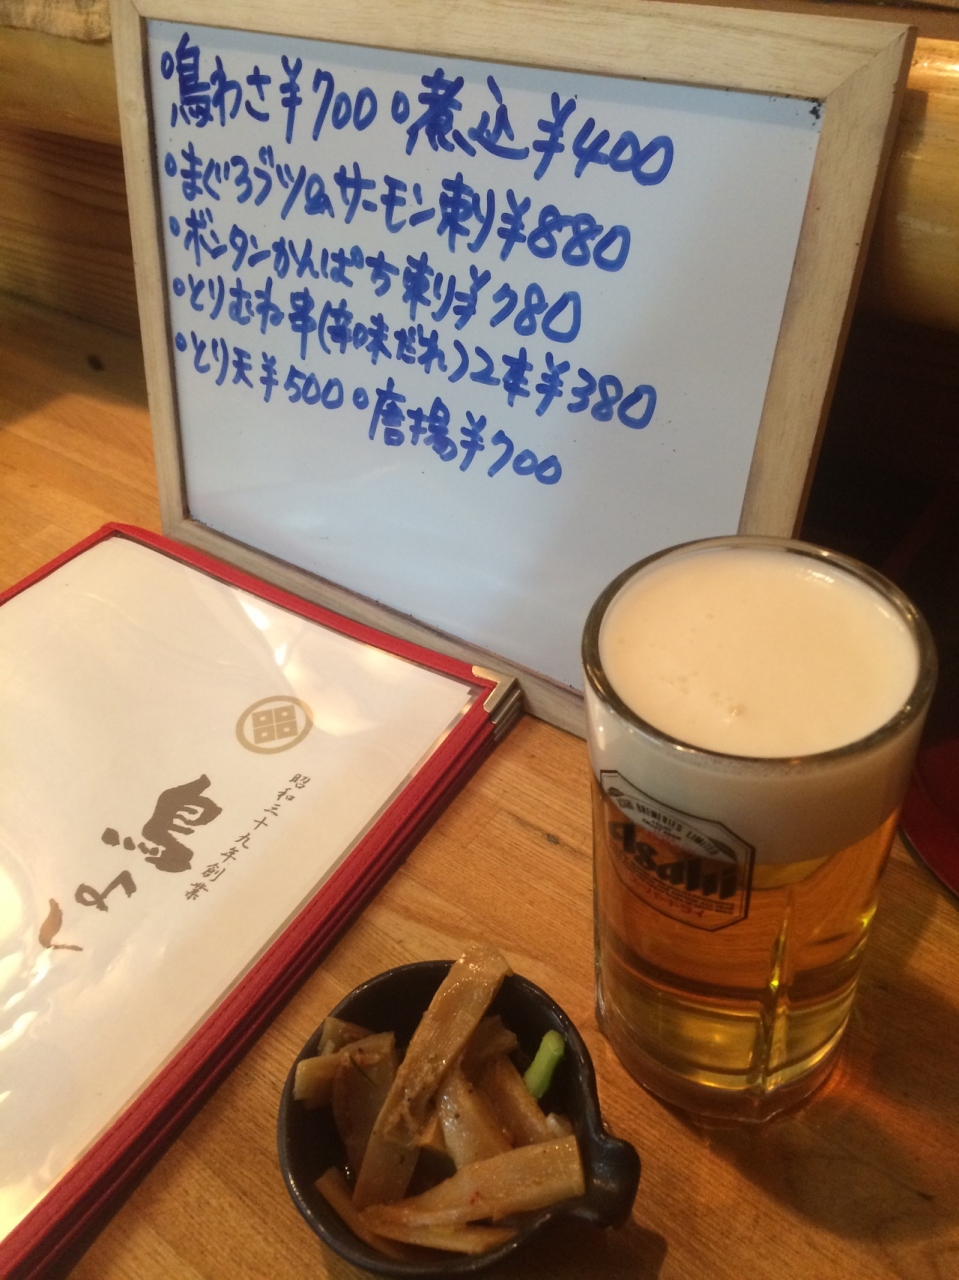 鳥わさ¥700 煮込¥400
まぐろブツ&サーモン刺¥880
ボタンかんぱち刺¥780
とりむね串(辛味だれ)2本¥380
とり天¥500 唐揚¥700
昭和三十九年創業
鳥よし
Asahi